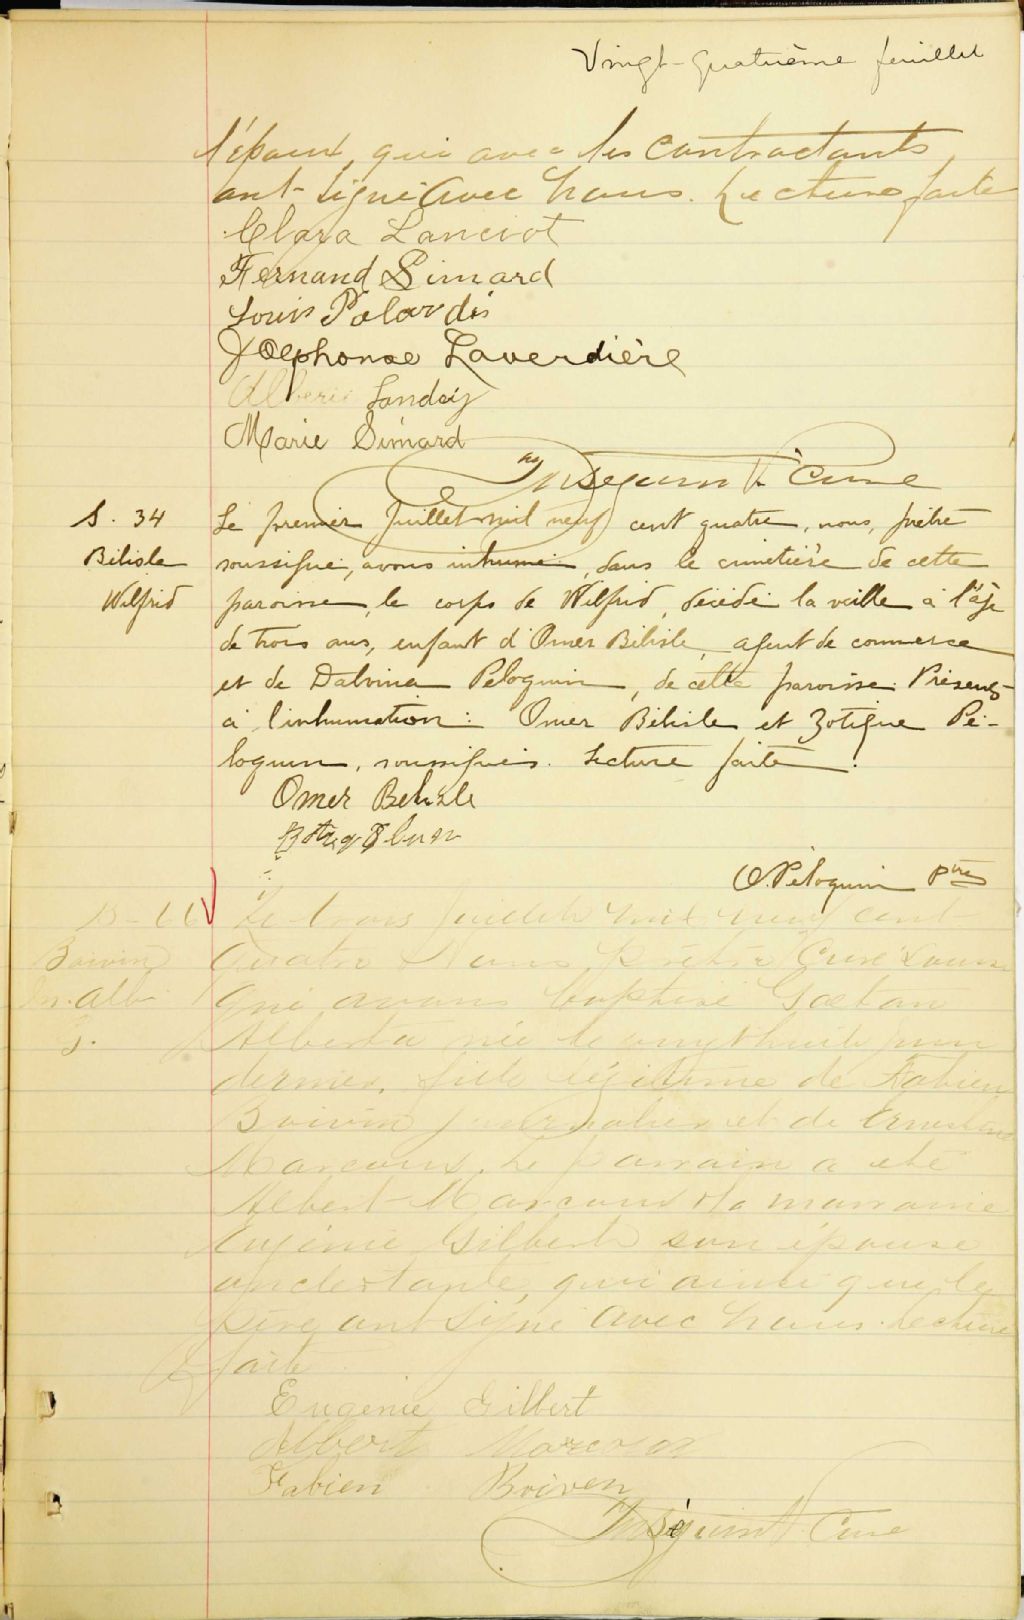 Vingt-quatrième feuillet
l'époux, qui avec les contractants
ont signé avec nous. Lecture faite
Clara Lanciot
Fernand Simard
Louis Palardis
Alphonse Laverdière
Alberic Landry
Marie Simard
Curé
S. 34
Bélisle
Wilfrid
Le premier Juillet mil neuf cent quatre, nous, prêtre
soussigné, avons inhumé, dans le cimetière de cette
paroisse, le corps de Wilfrid, décédé la veille à l'âge
de trois ans, enfant d'Omer Bélisle, agent de commerce
et de Dalvina Péloquin, de cette paroisse. Présents
à l'inhumation: Omer Bélisle et Zotique Pé-
loquin, soussignés. Lecture faite.
Omer Belisle
O. Péloquin ptre
B-66
Boivin
M. Alb.
G.
Le trois Juillet mil neuf cent
quatre Nous prêtre Curé Souss
gné avons baptisé Gaetan
Alberta née le vingt huit juin
dernier, fille légitime de Fabien
Boivin journalier et de
Marcoux. Le parrain a été
Albert Marcoux & la marraine
Eugénie Gilbert son épouse
oncle & tante, qui ainsi que le
père ont signé avec nous. Lecture
faite.
Eugénie Gilbert
Albert Marcoux
Fabien Boiven
Curé